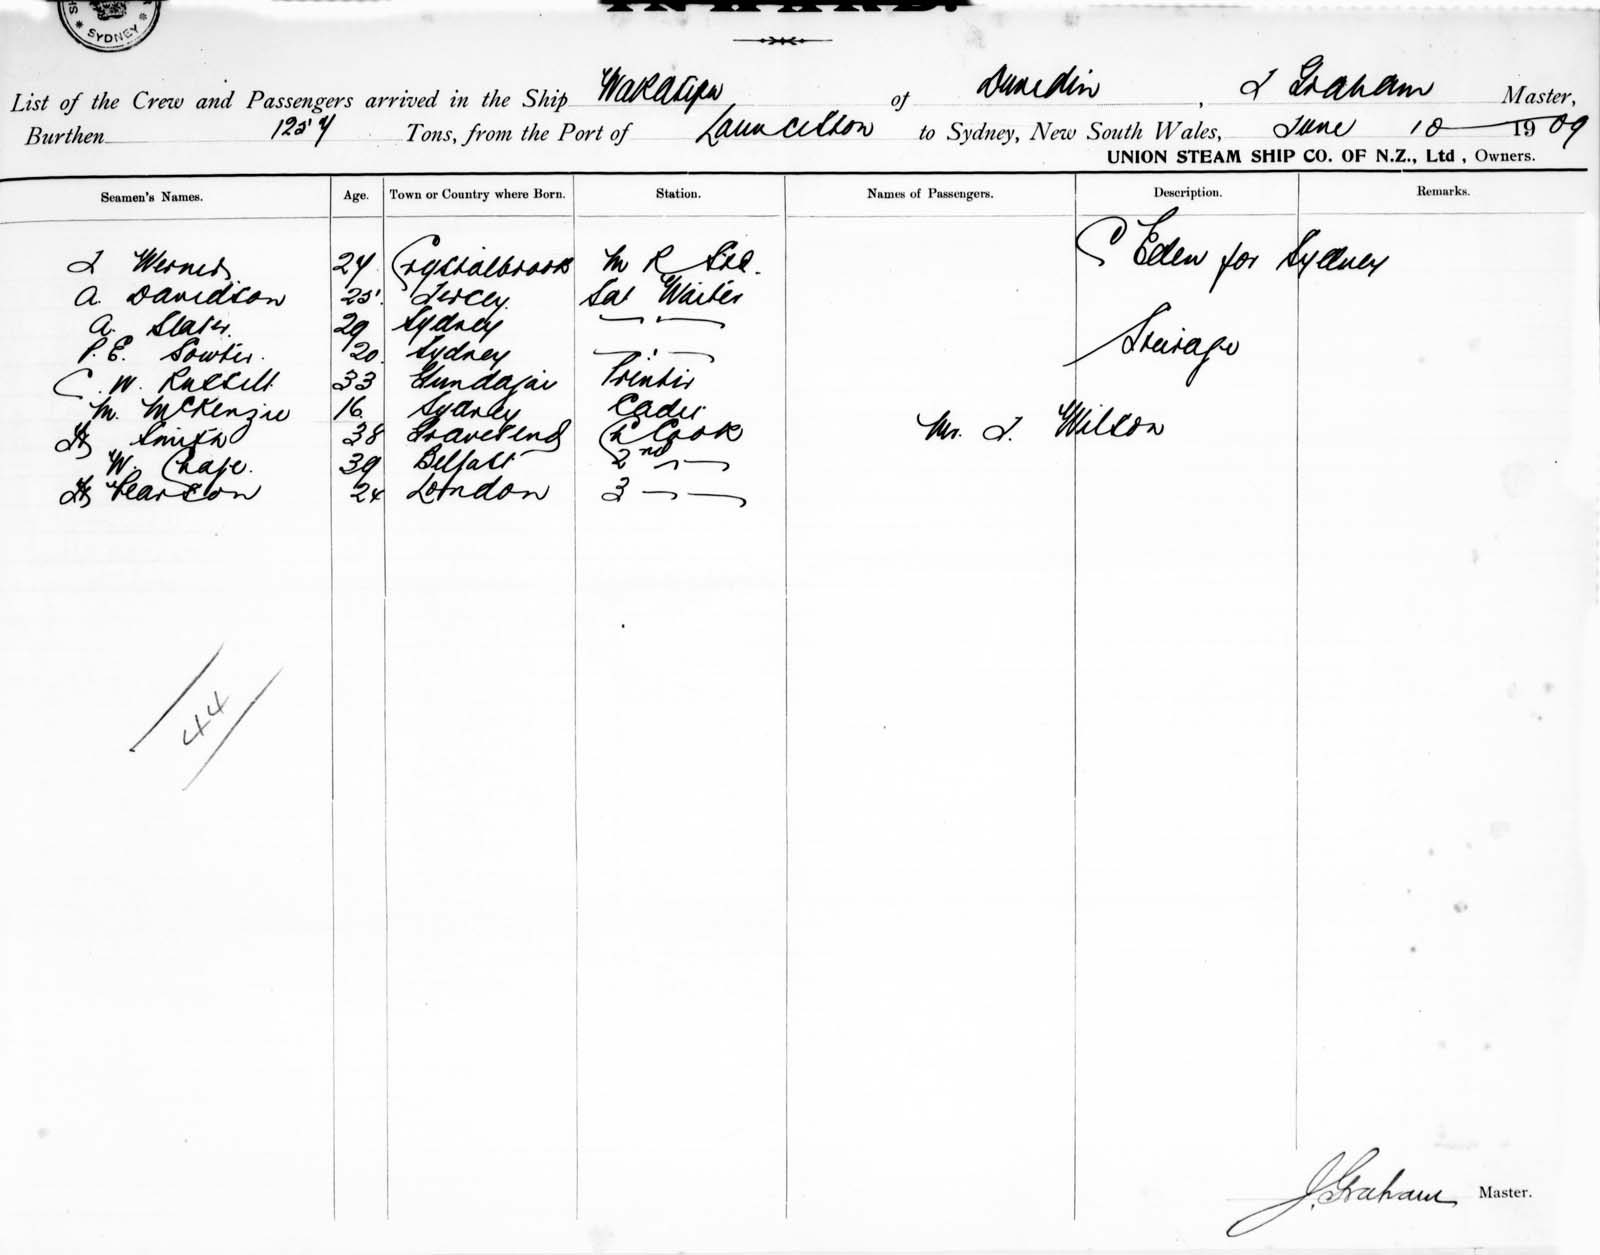 SYDNEY
INWARD.
List of the Crew and Passengers arrived in the Ship Wakatipu of Dunedin, J Graham Master,
Burthen 1257 Tons, from the Port of Launceston to Sydney, New South Wales, June 10 1909
UNION STEAM SHIP CO. OF N.Z., Ltd, Owners.
Seamen's Names. Age. Town or Country where Born. Station. Names of Passengers. Description. Remarks.
J 24 Crystalbrook M R Std. C Eden for Sydney
A. Davidson 25 Jersey Sal Waiter
A. Slater. 29 Sydney — " —
P. E. Sowter. 20 Sydney — " — Steirage
C. W. Russell 33 Gundagai Printer
M. McKenzie 16 Sydney Cadet
H Smith 38 Gravesend Ch Cook Mr. J. Wilson
W. Chape. 39 Belfast 2nd — —
H Pearson 24 London 3 — —
44
J. Graham Master.